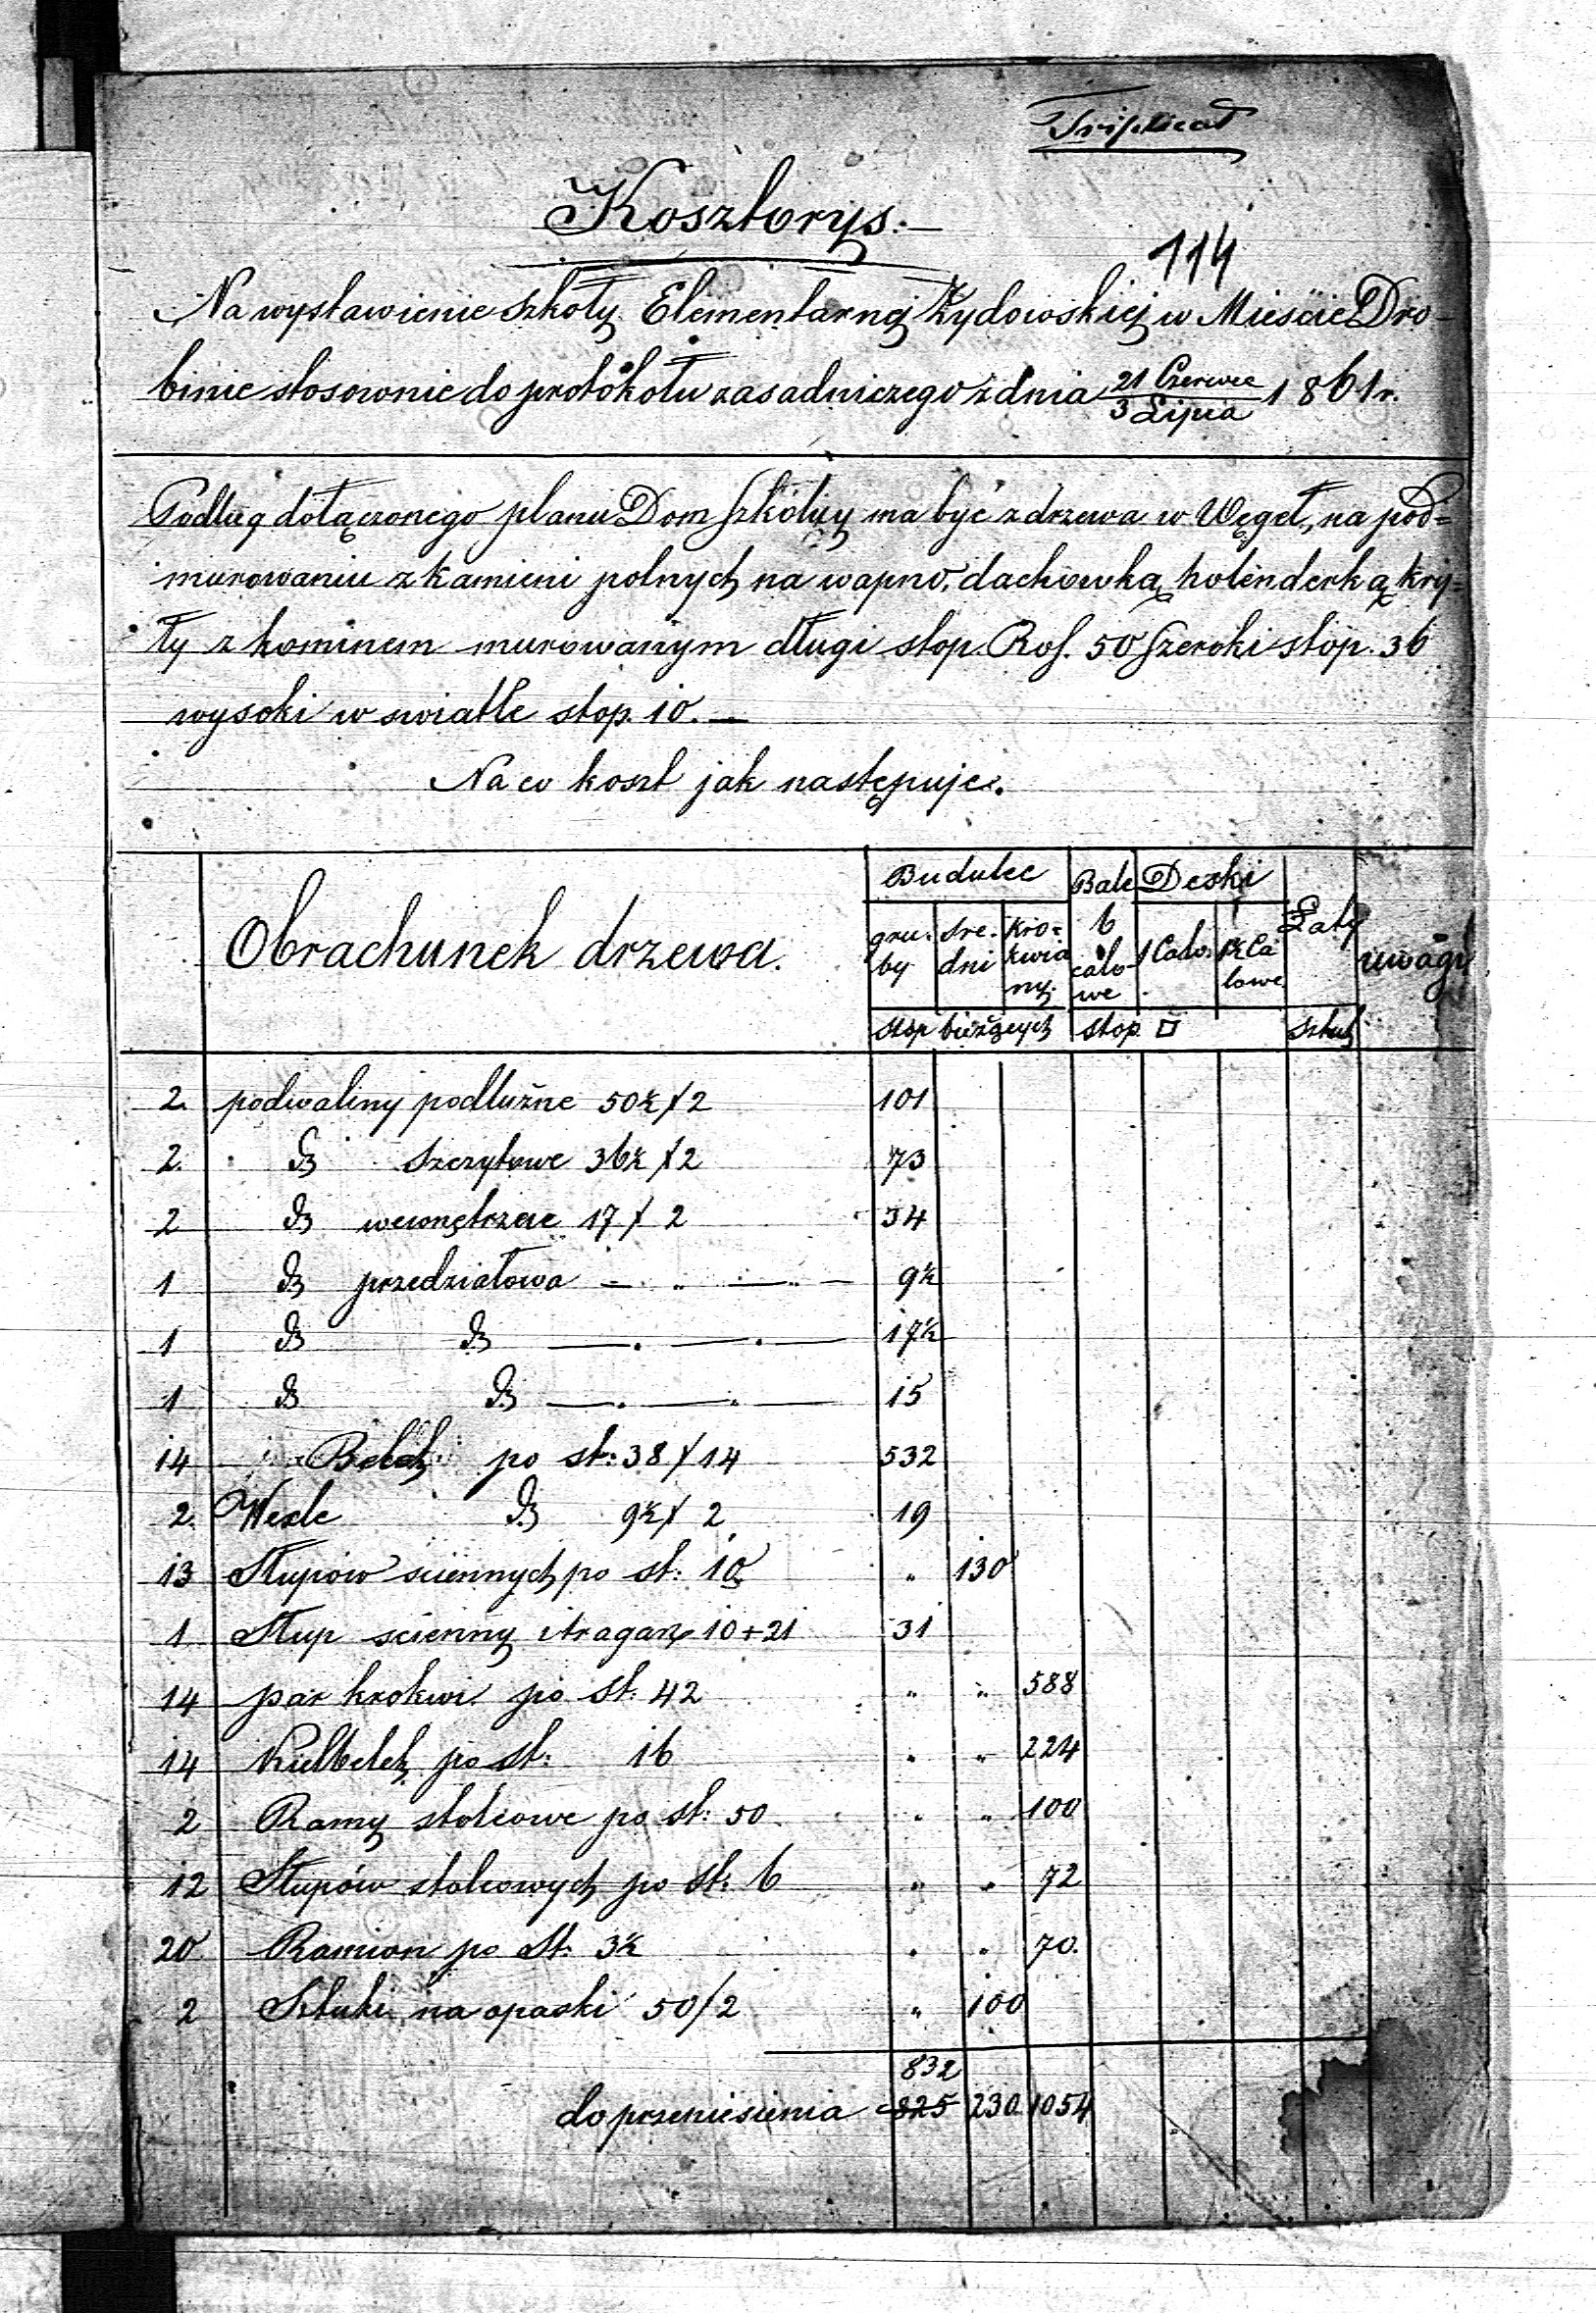 Triplicat
Kosztorys.
114
Na wystawienie szkoły Elementarnej Żydowskiej w Mieście Dro-
binie stosownie do protokołu zasadniczego z dnia 21 Czerwca / 3 Lipca 1861 r.
Podług dołączonego planu Dom szkolny ma być z drzewa w Węgeł, na pod=
murowaniu z kamieni polnych na wapno, dachówką holenderką kry=
ty z kominem murowanym długi stop. Ros. 50 szeroki stop. 36
wysoki w swiatłe stop. 10.—
Na co koszt jak następuje.
Obrachunek drzewa. Budulec Bale Deski Łaty uwagi
gru. by sre. dni kro= kwia ny. 6 calo we 1 Calo. 1½ Ca lowe.
stop bieżących stop □ Sztuk
2. podwaliny podłużne 50½ / 2 101
2. D szczytowe 36½ / 2 73
2 D wewnętrzne 17 / 2 34
1 D przedziałowa — „ — „ — 9½
1 D D —. —. — 17½
1 D D —. —. — 15
14 Belek po st: 38 / 14 532
2. Wexle D 9½ / 2 19
13 Słupów sciennych po st: 10 „ 130
1 Słup scienny i tragarz 10+21 31
14 par krokwi po st: 42 „ „ 588
14 Kielbelek po st: 16 „ „ 224
2 Ramy stolcowe po st: 50 „ „ 100
12 Słupów stolcowych po st: 6 „ „ 72
20 Ramion po st: 3½ „ „ 70.
2 Sztuki na opaski 50/2 „ 100
832
do przeniesienia 825 230 1054